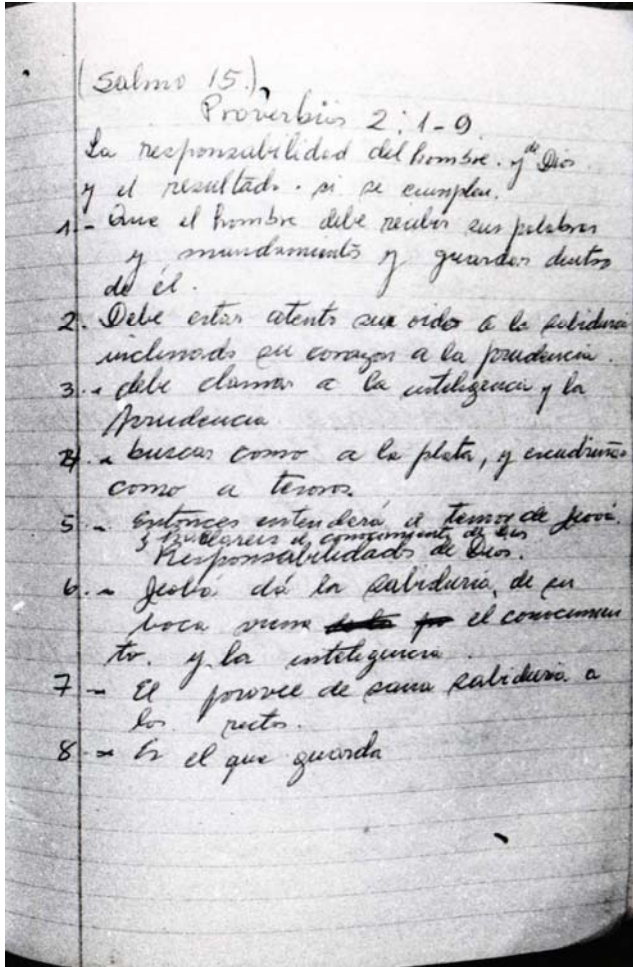 (Salmo 15.),
Proverbios 2:1-9.
La responsabilidad del hombre. y de Dios
y el resultado. si se cumplen.
1- Que el hombre debe recibir sus palabras
y mandamientos y guardar dentro
de él.
2. Debe estar atento sus oidos a la sabiduria
inclinado su corazon a la prudencia.
3.- debe clamar a la inteligencia y la
prudencia
4.- buscar como a la plata, y escudriñar
como a tesoros.
5- Entonces entenderá el temor de Jeová.
y hallareis el conocimiento de Dios
Responsabilidades de Dios.
6.- Jeobá dá la sabiduria, de su
boca viene el conocimien
to. y la inteligencia.
7- El provee de sana sabiduria a
los rectos.
8.- Es el que guarda